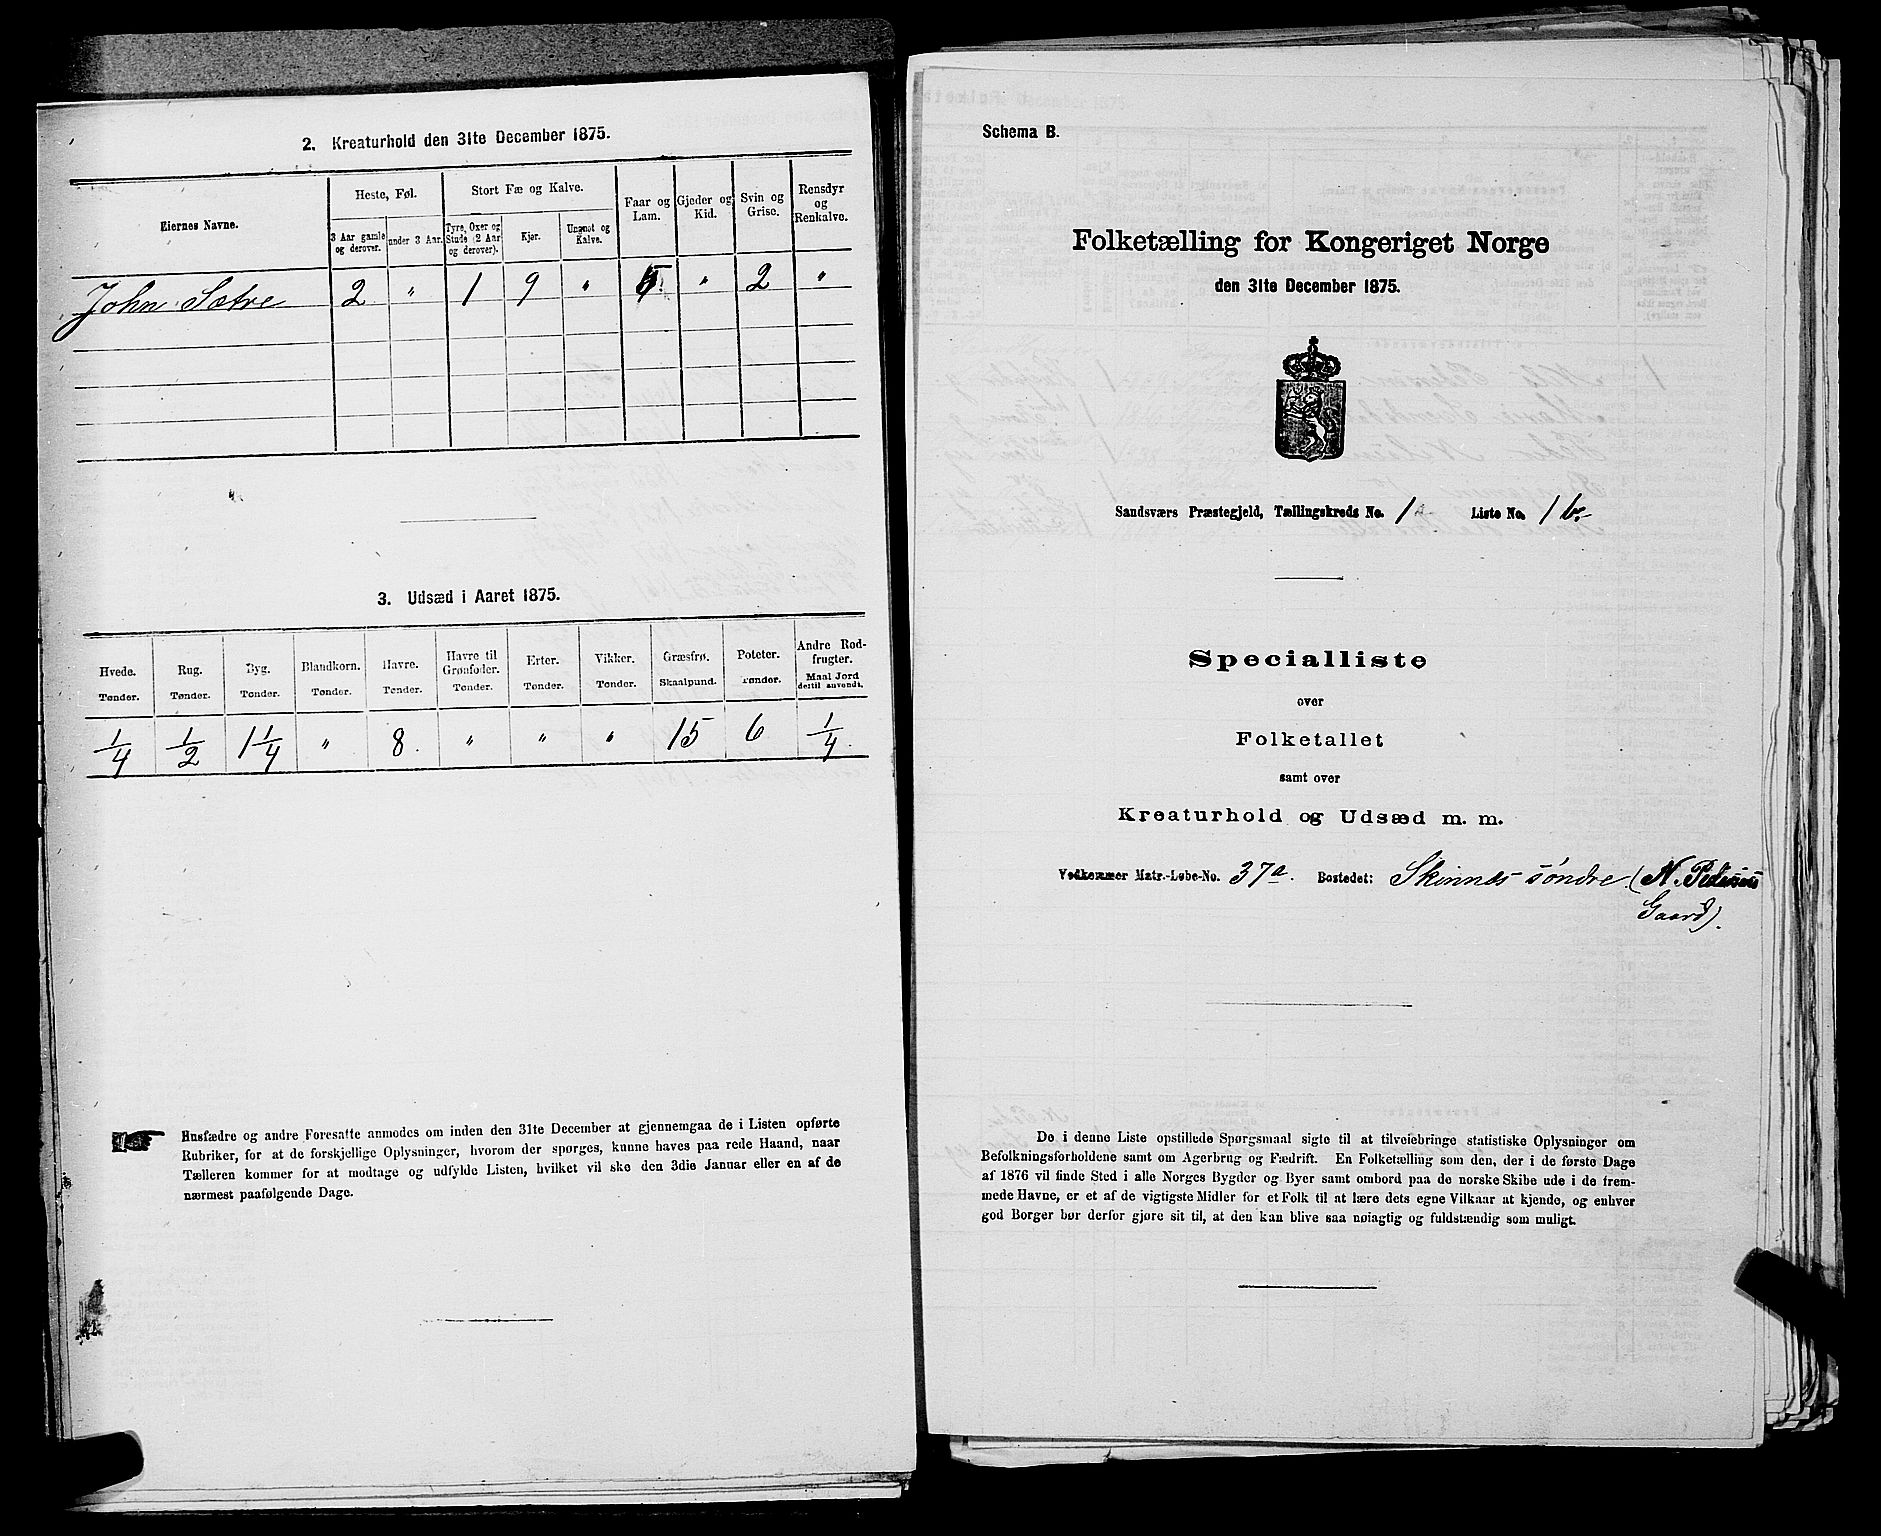 2. Kreaturhold den 31te December 1875.
Eiernes Navne.
Heste, Føl.
Stort Fæ og Kalve.
Faar og Lam.
Gjeder og Kid.
Svin og Grise.
Rensdyr og Renkalve.
3 Aar gamle og derover.
under 3 Aar.
Tyre, Oxer og Stude (2 Aar og derover).
Kjør.
Ungnøt og Kalve.
John Sætre 2 " 1 9 " 5 " 2 "
3. Udsæd i Aaret 1875.
Hvede. Rug. Byg. Blandkorn. Havre. Havre til Grønfoder. Erter. Vikker. Græsfrø. Poteter. Andre Rodfrugter.
Tønder. Tønder. Tønder. Tønder. Tønder. Tønder. Tønder. Tønder. Skaalpund. Tønder. Maal Jord dertil anvendt.
1/4 1/2 1 1/4 " 8. " " " 15 6 1/4.
Husfædre og andre Foresatte anmodes om inden den 31te December at gjennemgaa de i Listen opførte
Rubriker, for at de forskjellige Oplysninger, hvorom der spørges, kunne haves paa rede Haand, naar
Tælleren kommer for at modtage og udfylde Listen, hvilket vil ske den 3die Januar eller en af de
nærmest paafølgende Dage.
Schema B.
Folketælling for Kongeriget Norge
den 31te December 1875.
Sandsværs Præstegjeld, Tællingskreds No. 1 Liste No. 1 b.
Specialliste
over
Folketallet
samt over
Kreaturhold og Udsæd m. m.
Vedkommer Matr.-Løbe-No. 37a. Bostedet: Skinnes søndre (N. Pedersens
Gaard).
De i denne Liste opstillede Spørgsmaal sigte til at tilveiebringe statistiske Oplysninger om
Befolkningsforholdene samt om Agerbrug og Fædrift. En Folketælling som den, der i de første Dage
af 1876 vil finde Sted i alle Norges Bygder og Byer samt ombord paa de norske Skibe ude i de frem-
mede Havne, er et af de vigtigste Midler for et Folk til at lære dets egne Vilkaar at kjende, og enhver
god Borger bør derfor gjøre sit til, at den kan blive saa nøiagtig og fuldstændig som muligt.